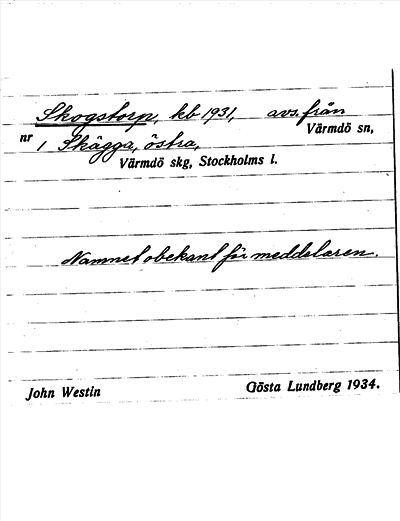 Skogstorp, kb 1931, avs. från
Värmdö sn,
nr 1 Skägga, östra,
Värmdö skg, Stockholms l.
Namnet obekant för meddelaren.
John Westin
Gösta Lundberg 1934.